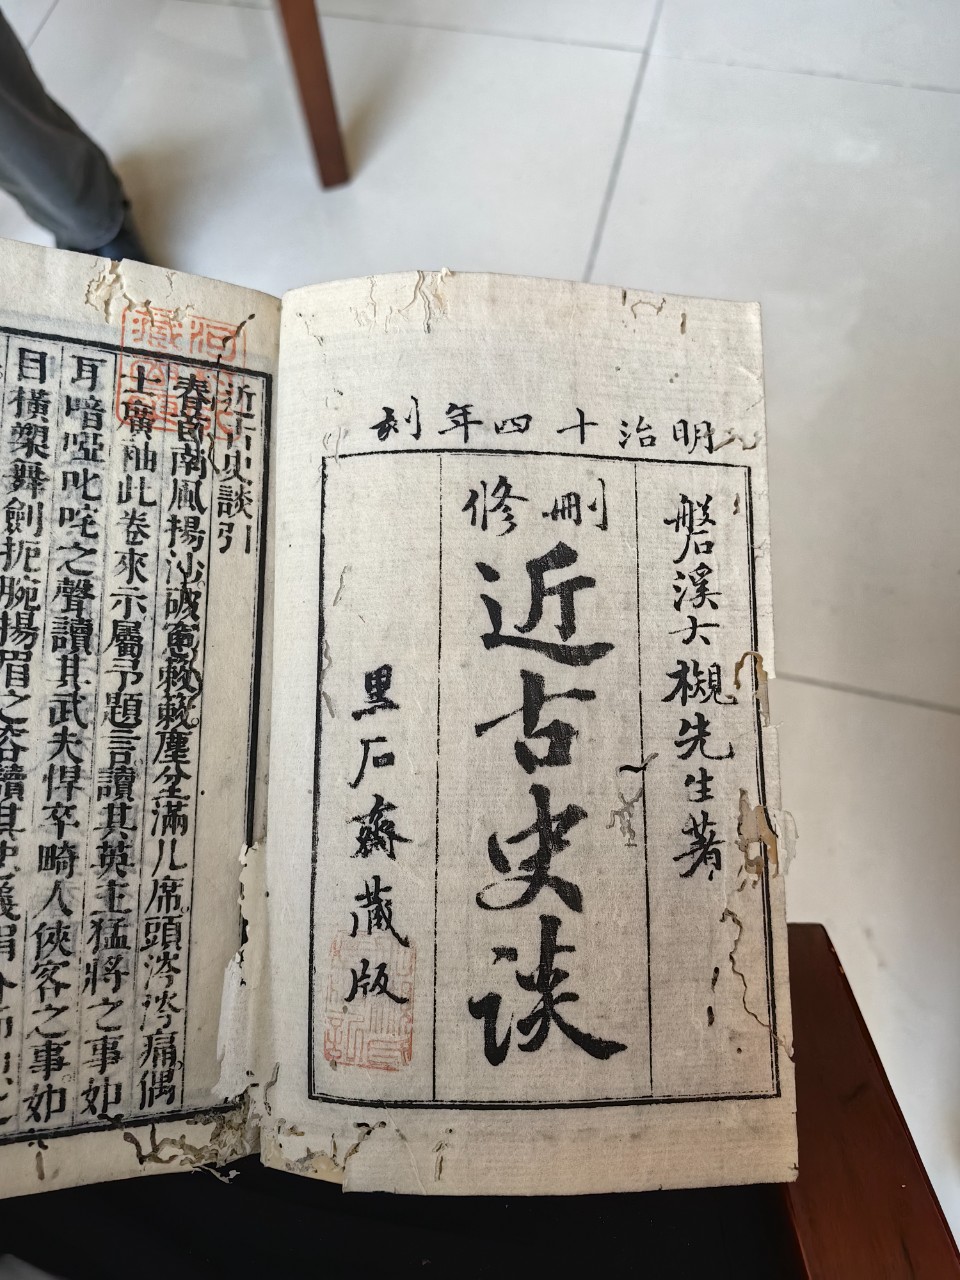 明治十四年刻
磐溪大槻先生著
刪修
近古史談
黒石齋藏版
近古史談引
春首南風揚沙破窻簌簌塵坌滿几席頭涔涔痛偶
士廣袖此卷來示屬予題言讀其英主猛將之事如
耳喑啞叱咤之聲讀其武夫悍卒畸人俠客之事如
目橫槊舞劍扼腕揚眉之容讀其